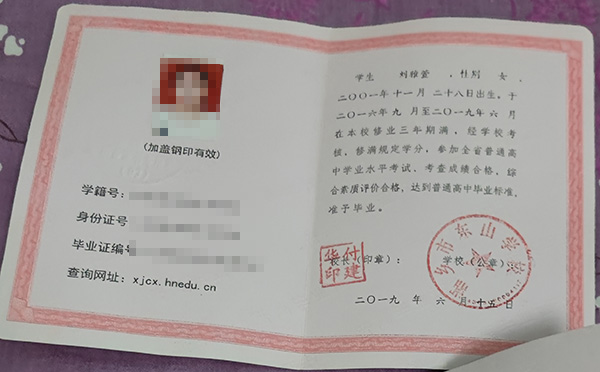 (加盖钢印有效)
学籍号:
身份证号
毕业证编号
查询网址: xjcx.hnedu.cn
学生 刘雅萱 ,性别 女 ,
二〇〇一年 十一月 二十八日出生,于
二〇一六年 九 月至二〇一九年 六 月
在本校修业三年期满,经学校考
核,修满规定学分,参加全省普通高
中学业水平考试、考查成绩合格,综
合素质评价合格,达到普通高中毕业标准,
准予毕业。
校长(印章): 学校(公章):
华付
印建
乡市东山学校
二〇一九 年 六 月 十五日